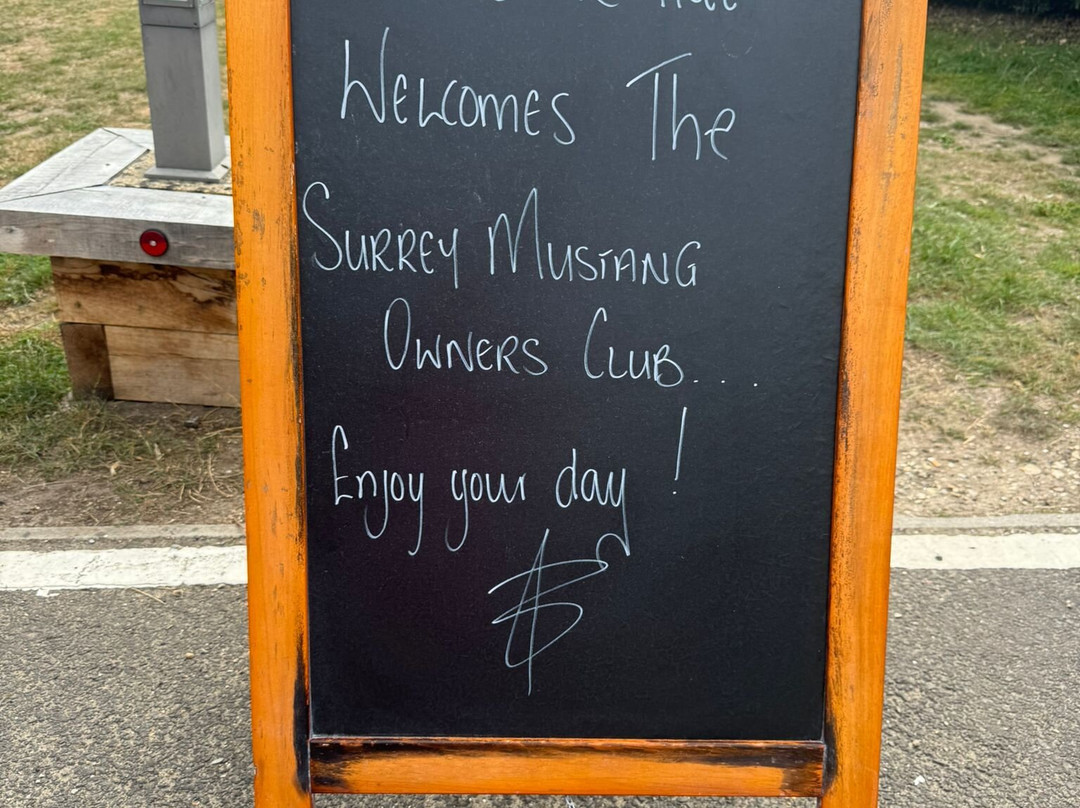 Welcomes The
Surrey Mustang
Owners Club....
Enjoy your day !